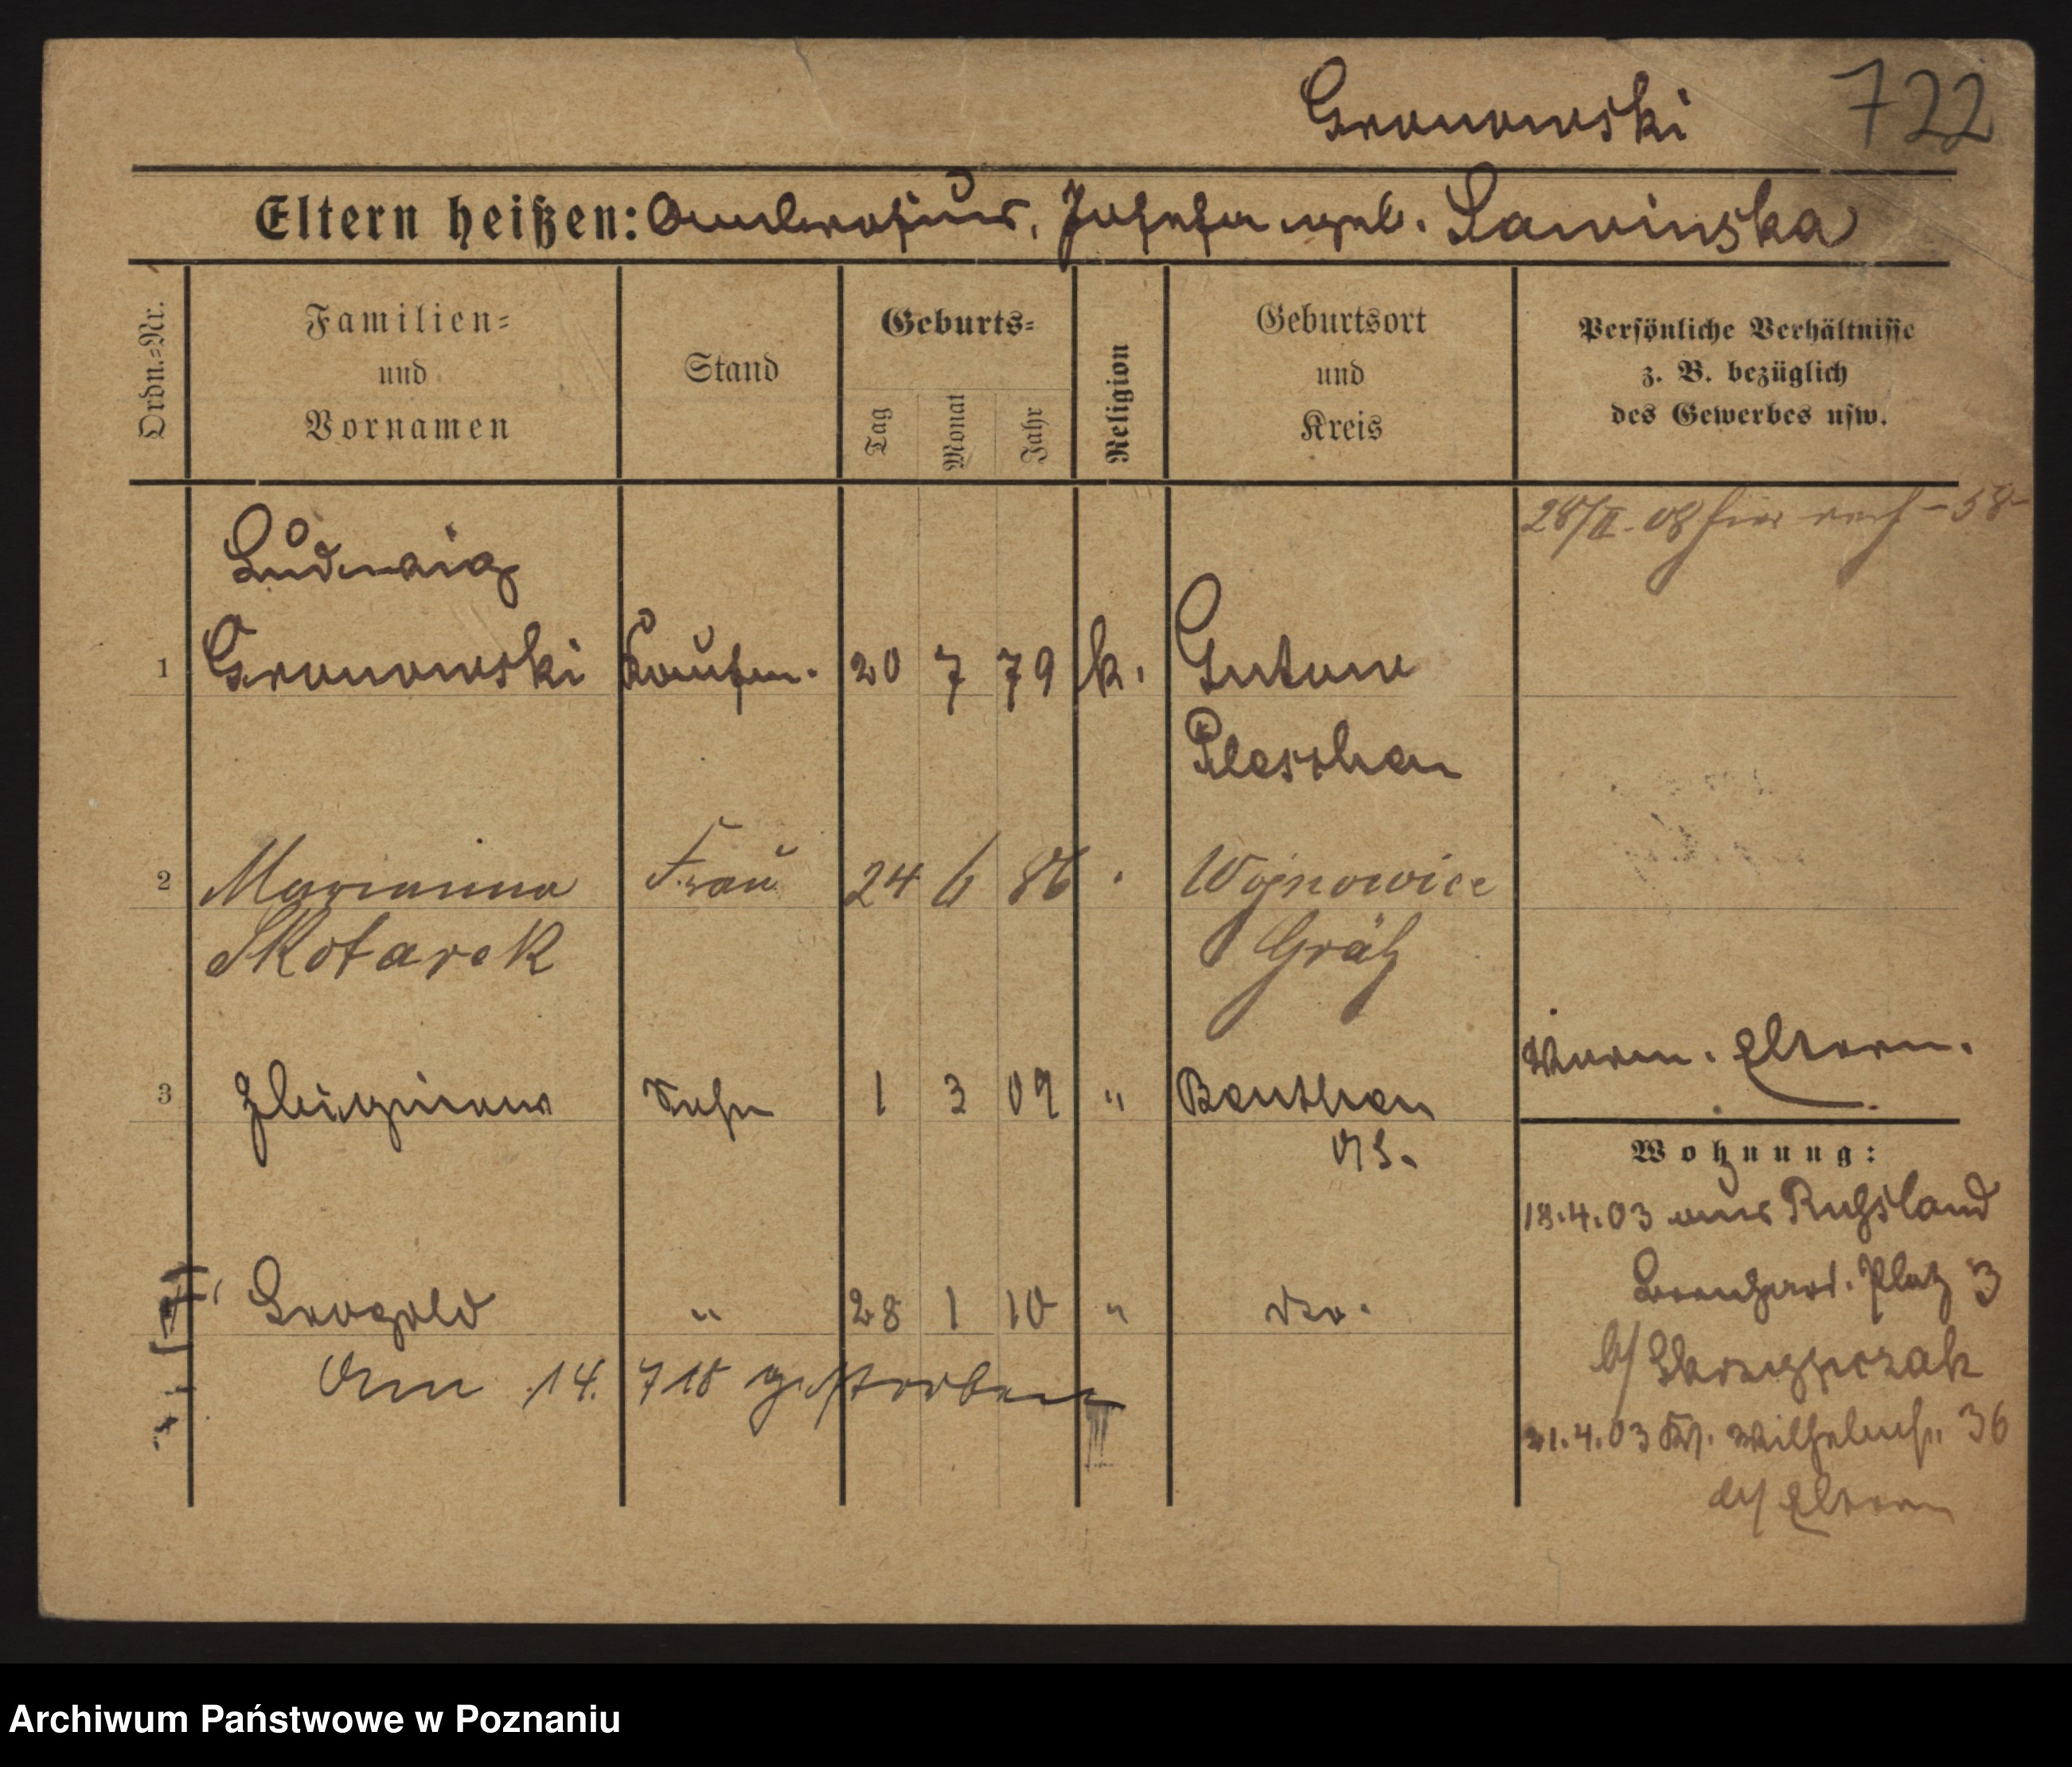 Gronowski 722
Eltern heißen: Ambrosius, Josefa geb. Lawinska
Ordn.=Nr.
Familien=
und
Vornamen
Stand
Geburts=
Tag
Monat
Jahr
Religion
Geburtsort
und
Kreis
Persönliche Verhältnisse
z. B. bezüglich
des Gewerbes usw.
28/II. 08 hier
Ludwig
1 Gronowski Kaufm. 20 7 79 k. Gutow
Pleschen
2 Marianna Frau 24 6 86 Wojnowice
Skotarek Grätz
Eltern.
3 Sohn 1 3 09 " Beuthen
OS.
Wohnung:
18.4.03 aus Russland
Platz 3
Leopold " 28 1 10 " dto.
b/
Am 14. 7 18 gestorben
21.4.03 Kr. Wilhelmstr. 36
b/ Eltern
Archiwum Państwowe w Poznaniu